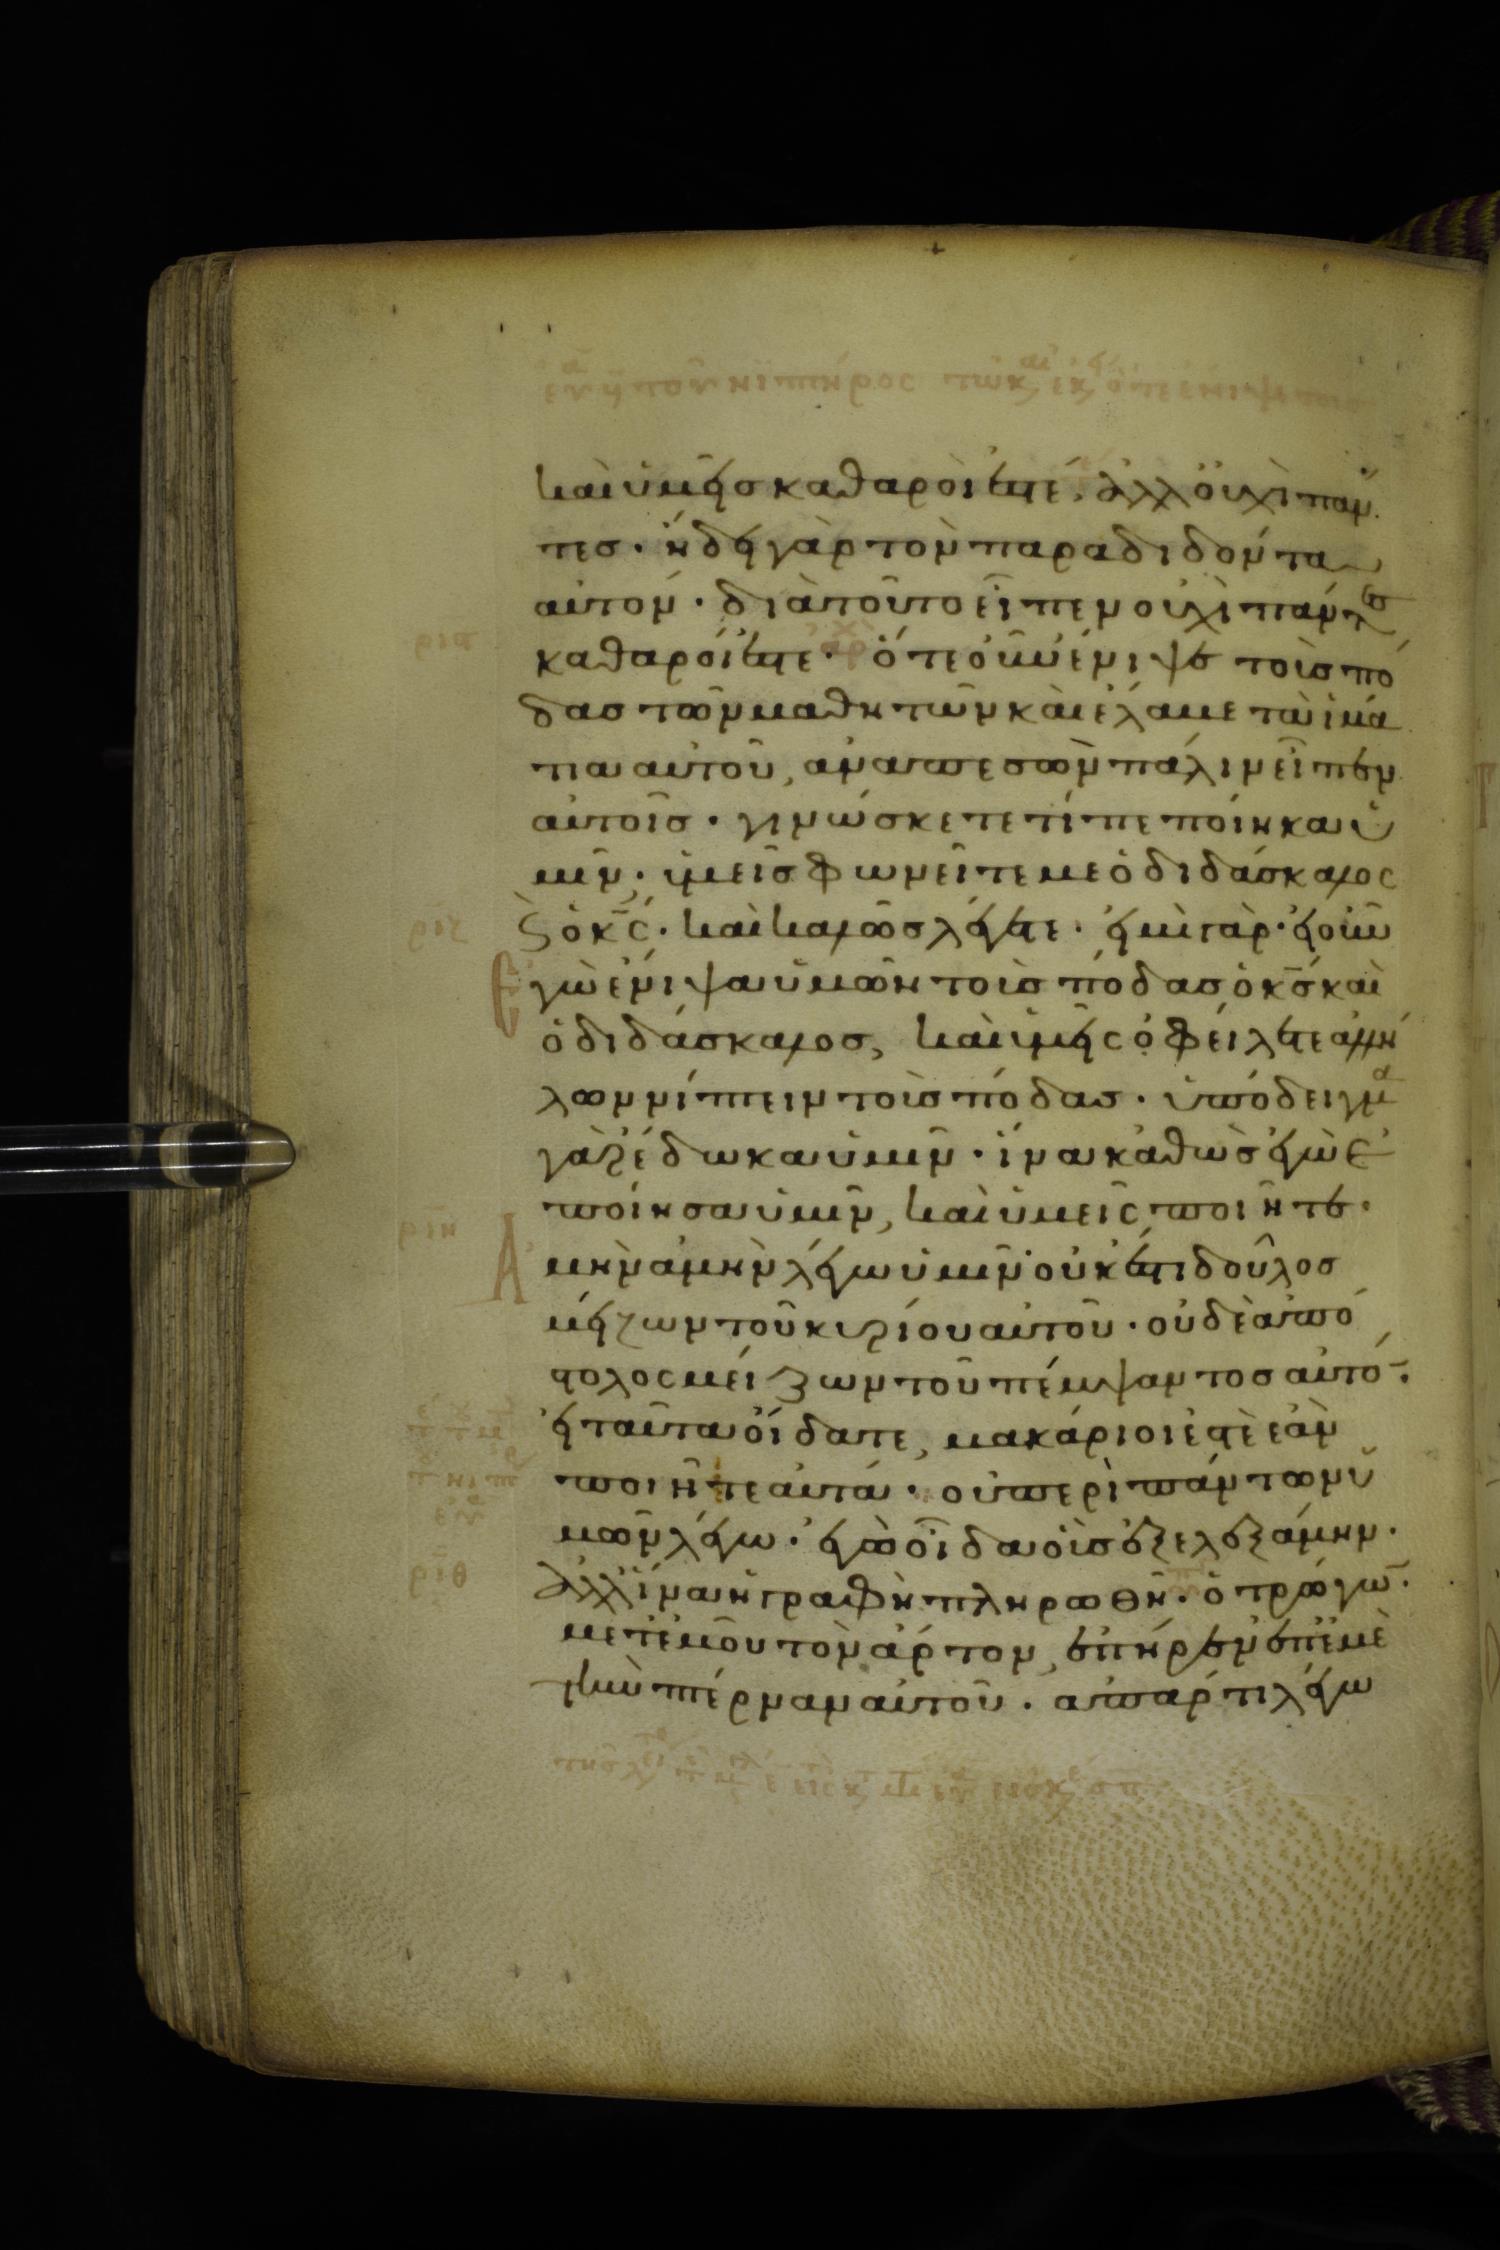 καὶ ὑμεῖς καθαροὶ ἐστέ, ἀλλ οὐχὶ πάν
τες· ἤδει γὰρ τὸν παραδιδόντα
αὐτόν· διὰ τοῦτο εἶπεν οὐχὶ πάντες
καθαροί ἐστε· ὅτε οὖν ἔνιψε τοὺς πό
δας τῶν μαθητῶν καὶ ἔλαβε τὰ ἱμά
τια αὐτοῦ, ἀναπεσὼν πάλιν εἶπεν
αὐτοῖς· γινώσκετε τί πεποίηκα ὑ
μῖν· ὑμεῖς φωνεῖτε με ὁ διδάσκαλος
ϗ ὁ κ̅ς· καὶ καλῶς λέγετε· εἰμὶ γὰρ· εἰ οὖν
Ἐγὼ ἔνιψα ὑμῶν τοὺς πόδας ὁ κ̅ς καὶ
ὁ διδάσκαλος, καὶ ὑμεῖς ὀφείλετε ἀλλή
λων νίπτειν τοὺς πόδας· ὑπόδειγμα
γὰρ ἔδωκα ὑμῖν· ἵνα καθὼς ἐγὼ ἐ
ποίησα ὑμῖν, καὶ ὑμεῖς ποιῆτε·
Ἀμὴν ἀμὴν λέγω ὑμῖν οὐκ ἔστι δοῦλος
μείζων τοῦ κυρίου αὐτοῦ· οὐδὲ ἀπό
στολος μείζων τοῦ πέμψαντος αὐτό̅·
εἰ ταῦτα οἴδατε, μακάριοι ἐστὲ ἐὰν
ποιῆτε αὐτά· οὐ περὶ πάντων ὑ
μῶν λέγω· ἐγὼ οἶδα οὓς ἐξελεξάμην·
ἀλλ ἵνα ἡ γραφὴ πληρωθῆ· ὁ τρώγω̅·
μετ ἐμοῦ τὸν ἄρτον, ἐπῆρεν ἐπ ἐμὲ
τὴν πτέρναν αὐτοῦ· ἀπ ἄρτι λέγω